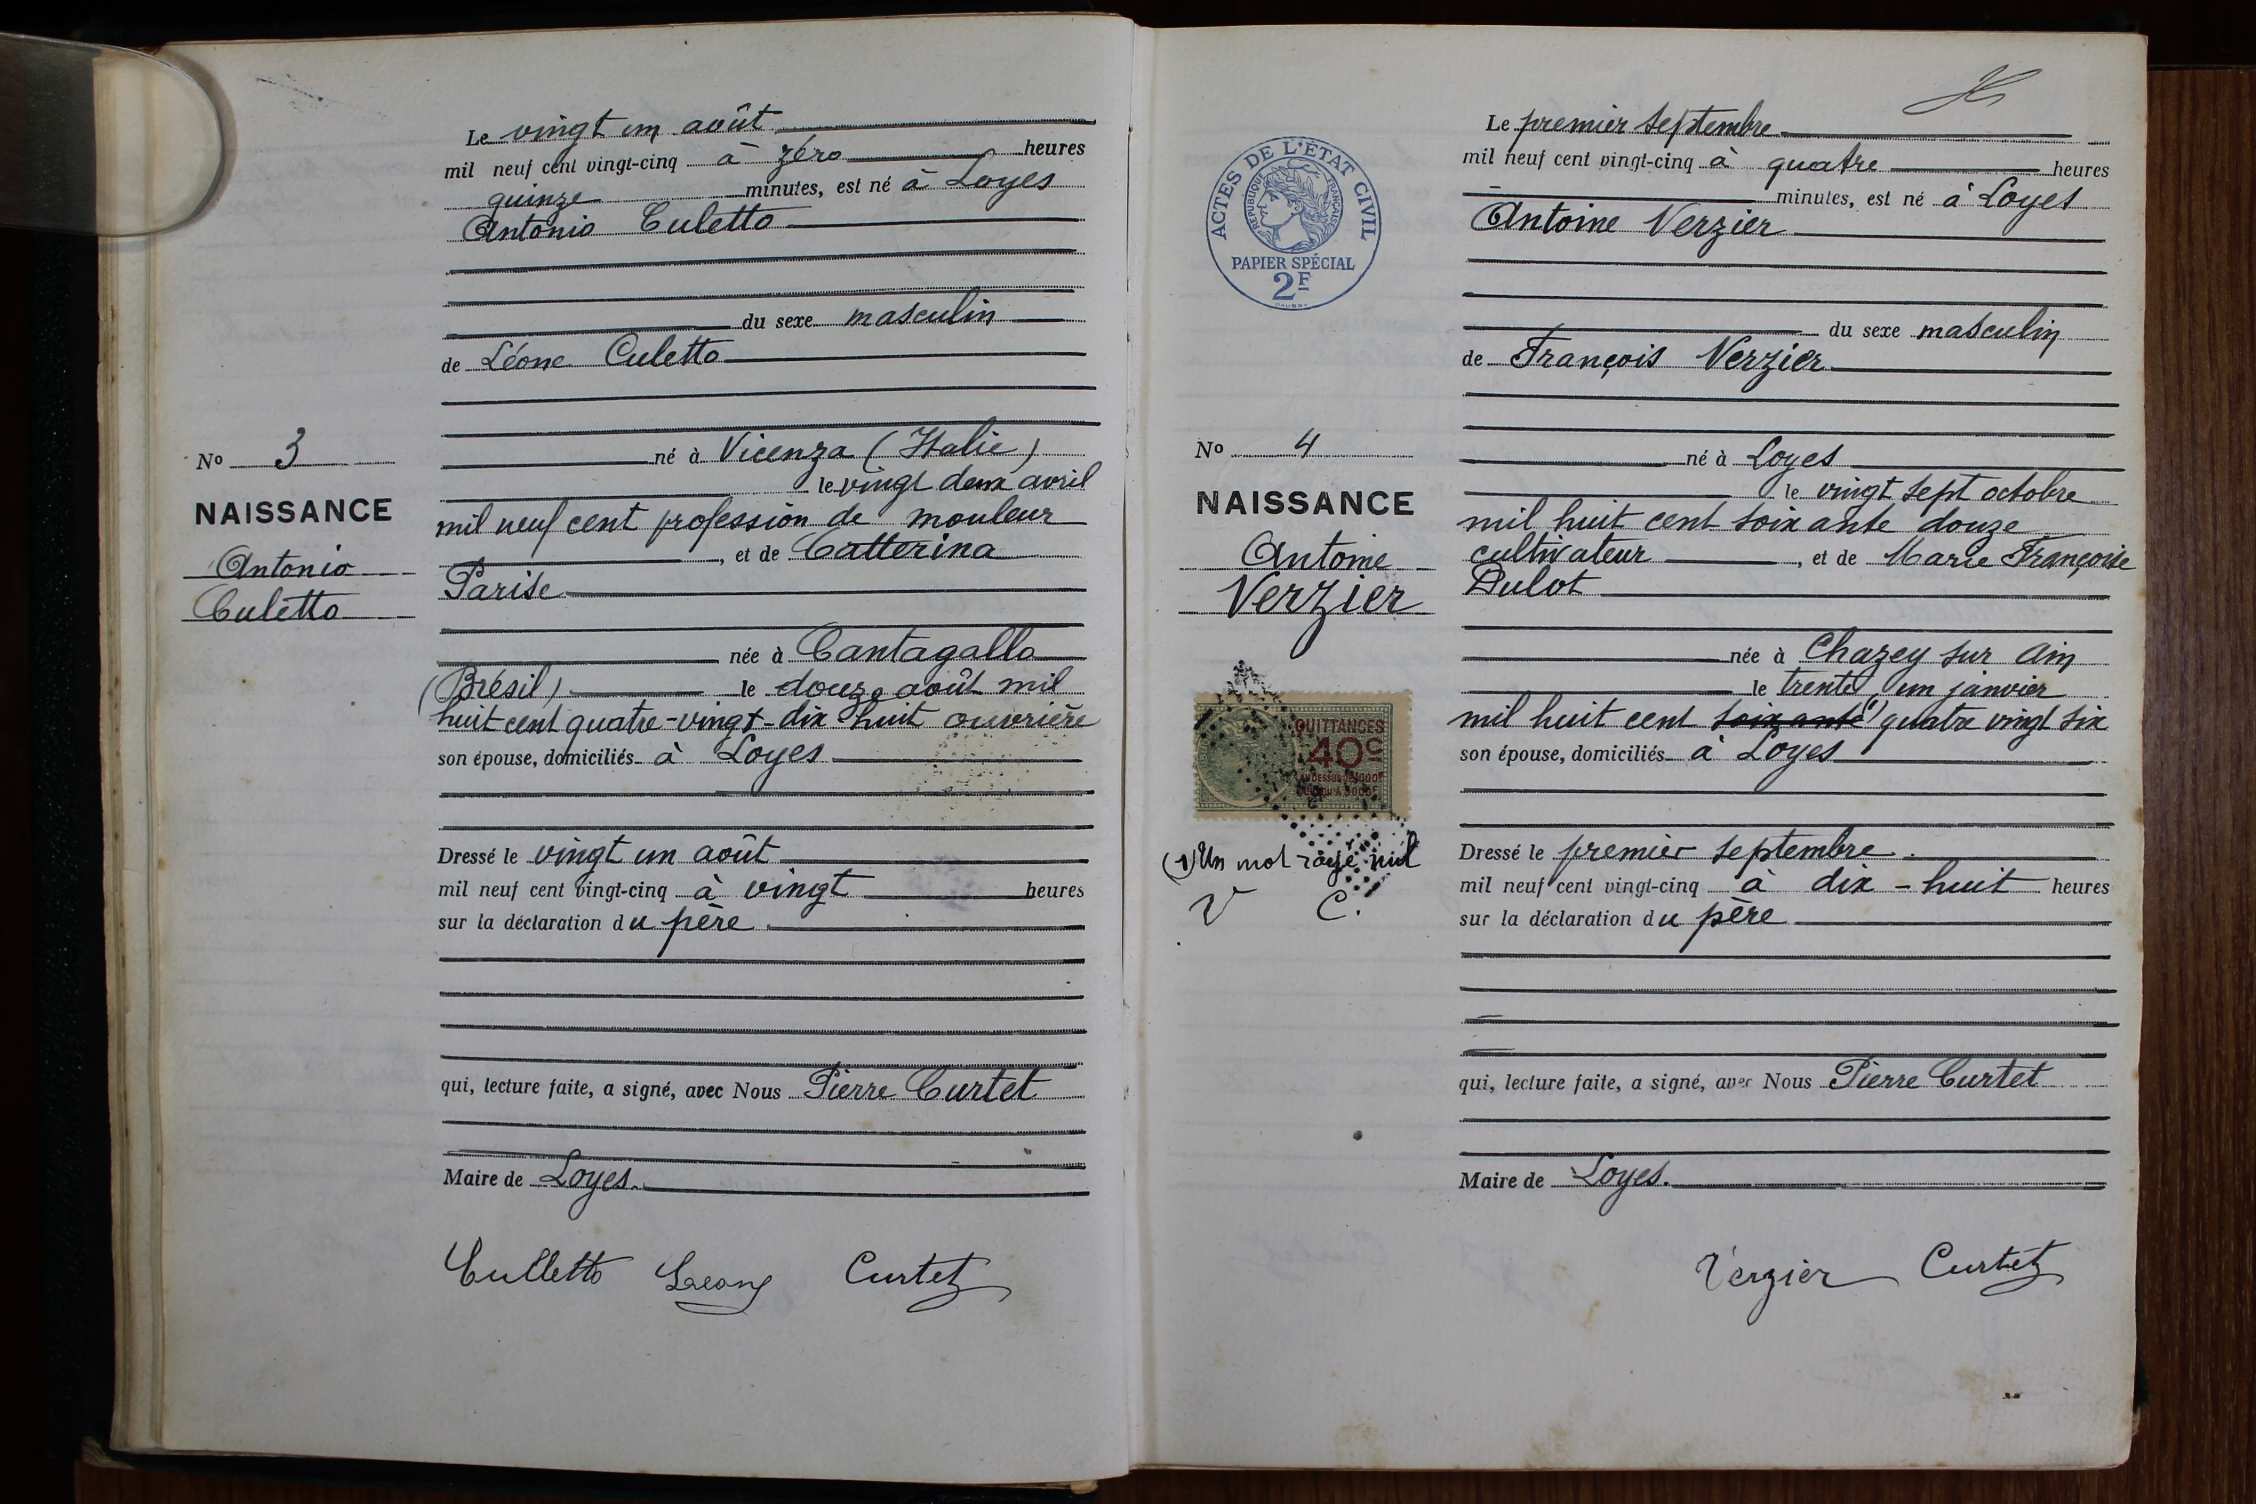 Le vingt un août
mil neuf cent vingt-cinq à zéro heures
quinze minutes, est né à Loyes
Antonio Culetto
du sexe masculin
de Léone Culetto
né à Vicenza (Italie)
le vingt deux avril
mil neuf cent profession de mouleur
, et de Catterina
Parise
née à Cantagallo
(Brésil) le douze août mil
huit cent quatre-vingt-dix huit ouvrière
son épouse, domiciliés à Loyes
Dressé le vingt un août
mil neuf cent vingt-cinq à vingt heures
sur la déclaration du père
qui, lecture faite, a signé, avec Nous Pierre Curtet
Maire de Loyes.
Culletto Leone Curtet
No 3
NAISSANCE
Antonio
Culetto
ACTES DE L'ÉTAT CIVIL
RÉPUBLIQUE FRANÇAISE
PAPIER SPÉCIAL
2F
No 4
NAISSANCE
Antoine
Verzier
QUITTANCES
40c
(1) Un mot rayé nul
V C.
Le premier septembre
mil neuf cent vingt-cinq à quatre heures
minutes, est né à Loyes
Antoine Verzier
du sexe masculin
de François Verzier
né à Loyes
le vingt sept octobre
mil huit cent soixante douze
cultivateur , et de Marie Françoise
Dulot
née à Chazey sur Ain
le trente un janvier
mil huit cent soixante (1) quatre vingt six
son épouse, domiciliés à Loyes
Dressé le premier septembre.
mil neuf cent vingt-cinq à dix-huit heures
sur la déclaration du père
qui, lecture faite, a signé, avec Nous Pierre Curtet
Maire de Loyes.
Verzier Curtet